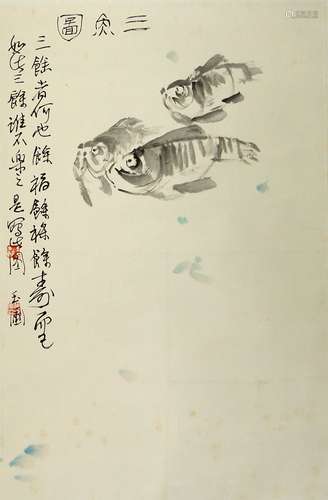 三魚圖
三餘者何也餘福餘祿餘壽而已
如此三餘誰不樂之是寫此圖